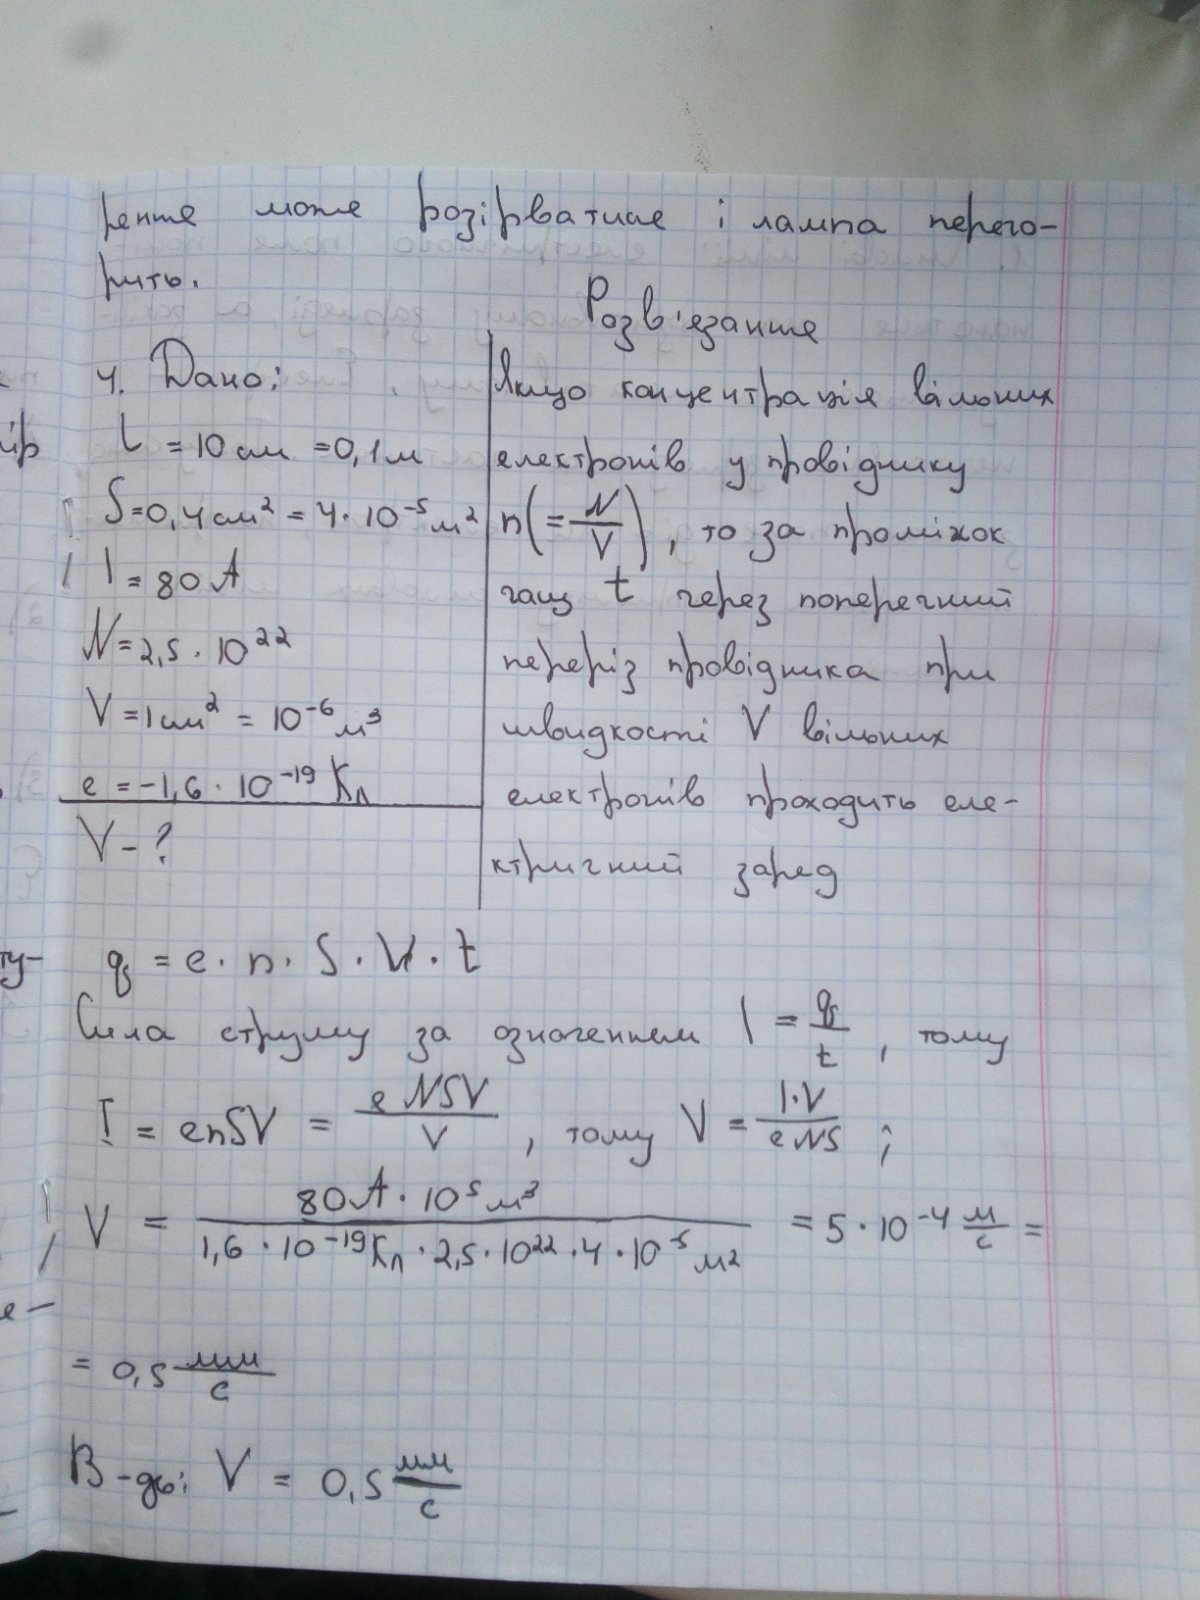 рення може розірватися і лампа перего-
рить.
Розв'язання
4. Дано:
l = 10 см = 0,1 м
S = 0,4 см² = 4 · 10⁻⁵ м²
I = 80 А
N = 2,5 · 10²²
V = 1 см² = 10⁻⁶ м³
e = -1,6 · 10⁻¹⁹ Кл
V - ?
Якщо концентрація вільних
електронів у провіднику
n(= N/V), то за проміжок
часу t через поперечний
переріз провідника при
швидкості V вільних
електронів проходить еле-
ктричний заряд
q = e · n · S · V · t
Сила струму за означенням I = q/t, тому
I = enSV = eNSV/V, тому V = I·V/eNS;
V = 80А · 10⁵ м³ / 1,6 · 10⁻¹⁹ Кл · 2,5 · 10²² · 4 · 10⁻⁵ м² = 5 · 10⁻⁴ м/с =
= 0,5 мм/с
В-дь: V = 0,5 мм/с